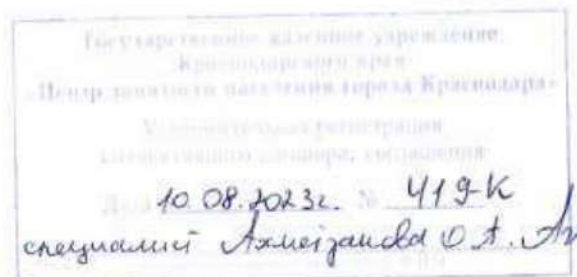 Государственное казенное учреждение
Краснодарского края
«Центр занятости населения города Краснодара»
Уведомительная регистрация
коллективного договора, соглашения
Дата 10.08.2023г. № 419-К
специалист О.А.